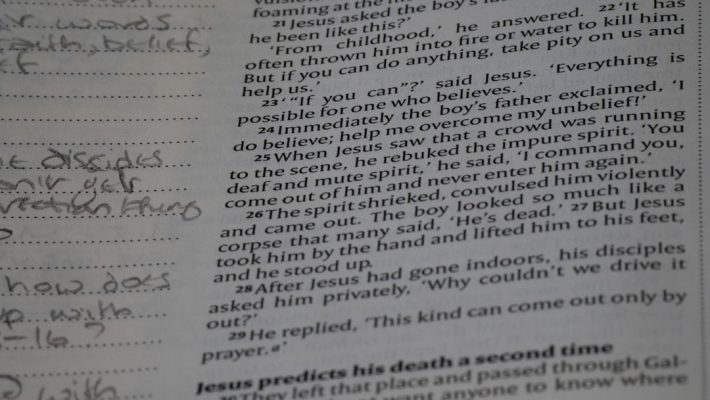 words
faith, belief,
disciples
thing
how does
with
-16?
with
foaming at the
21 Jesus asked the boy's
he been like this?'
'From childhood,' he answered. 22 'It has
often thrown him into fire or water to kill him.
But if you can do anything, take pity on us and
help us.'
23 '"If you can"?' said Jesus. 'Everything is
possible for one who believes.'
24 Immediately the boy's father exclaimed, 'I
do believe; help me overcome my unbelief!'
25 When Jesus saw that a crowd was running
to the scene, he rebuked the impure spirit. 'You
deaf and mute spirit,' he said, 'I command you,
come out of him and never enter him again.'
26 The spirit shrieked, convulsed him violently
and came out. The boy looked so much like a
corpse that many said, 'He's dead.' 27 But Jesus
took him by the hand and lifted him to his feet,
and he stood up.
28 After Jesus had gone indoors, his disciples
asked him privately, 'Why couldn't we drive it
out?'
29 He replied, 'This kind can come out only by
prayer.a'
Jesus predicts his death a second time
30 They left that place and passed through Gal-
want anyone to know where